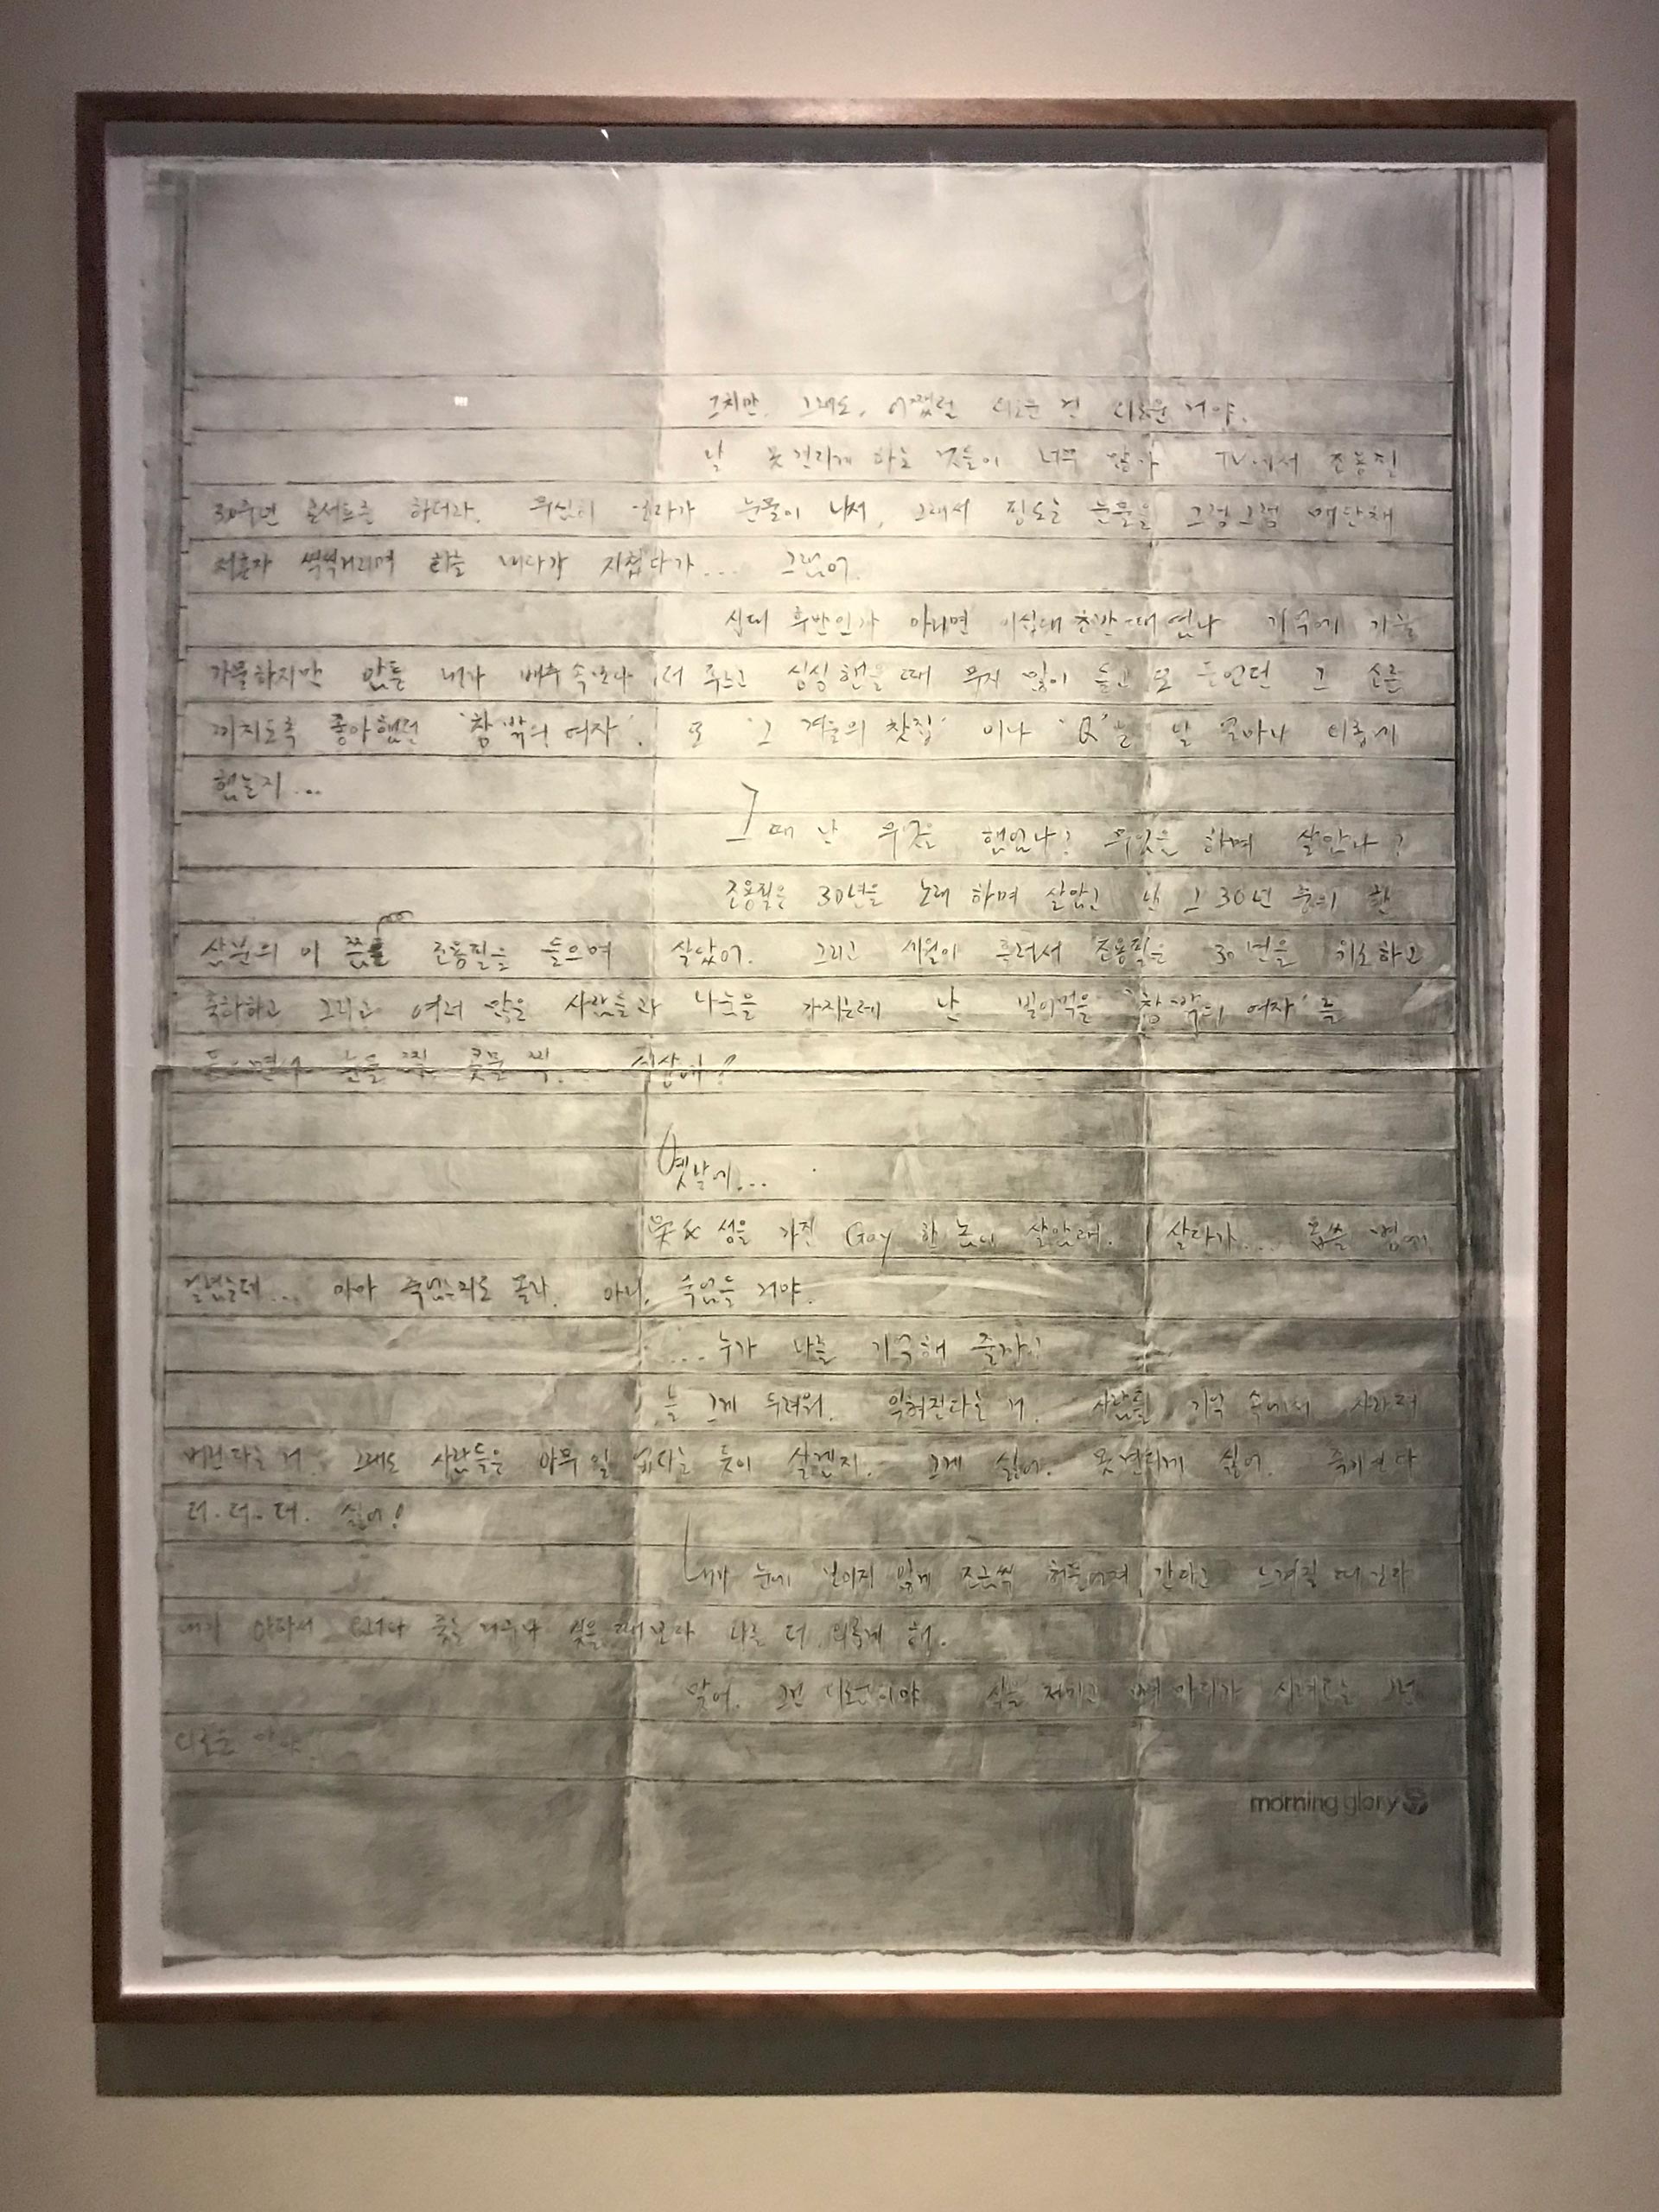 그치만, 그래도, 어쨌던 서러운 건 서러운 거야.
날 못 견디게 하는 것들이 너무 많아 TV에서 조용필
30주년 콘서트를 하더라. 무심히 보다가 눈물이 나서, 그래서 핑도는 눈물을 그렁그렁 매단채
저혼자 씩씩거리며 화를 내다가 지쳤다가... 그랬어.
십대 후반인가 아니면 이십대 초반 때 였나 기억에 가물
가물하지만 암튼 내가 배추속보다 더 푸르고 싱싱했을 때 무지 많이 듣고 또 들었던 그 소름
끼치도록 좋아했던 '창밖의 여자', 또 '그 겨울의 찻집' 이나 'Q'는 날 얼마나 외롭게
했는지...
그때 난 무엇을 했었나? 무엇을 하며 살았나?
조용필은 30년을 노래 하며 살았고 난 그 30년 중의 한
삼분의 이 쯤을 조용필을 들으며 살았어. 그리고 세월이 흘러서 조용필은 30년을 기념하고
축하하고 그리고 여러 많은 사람들과 나눔을 가지는데 난 빌어먹을 '창밖의 여자'를
들으면서 눈물 찍, 콧물 찍... 세상에?
옛날에...
吳씨 성을 가진 Gay 한 놈이 살았대. 살다가... 몹쓸 병에
걸렸는데... 아마 죽었는지도 몰라. 아니, 죽었을 거야.
...누가 나를 기억해 줄까?
늘 그게 두려워. 잊혀진다는 거. 사람들 기억 속에서 사라져
버린다는 거. 그래도 사람들은 아무 일 없다는 듯이 살겠지. 그게 싫어. 못견디게 싫어. 죽기보다
더. 더. 더. 싫어!
내가 눈에 보이지 않게 조금씩 허물어져 간다고 느껴질 때 보다
내가 아파서 나를 더 외롭게 해.
맞어. 그건 서러운
서러운
morning glory